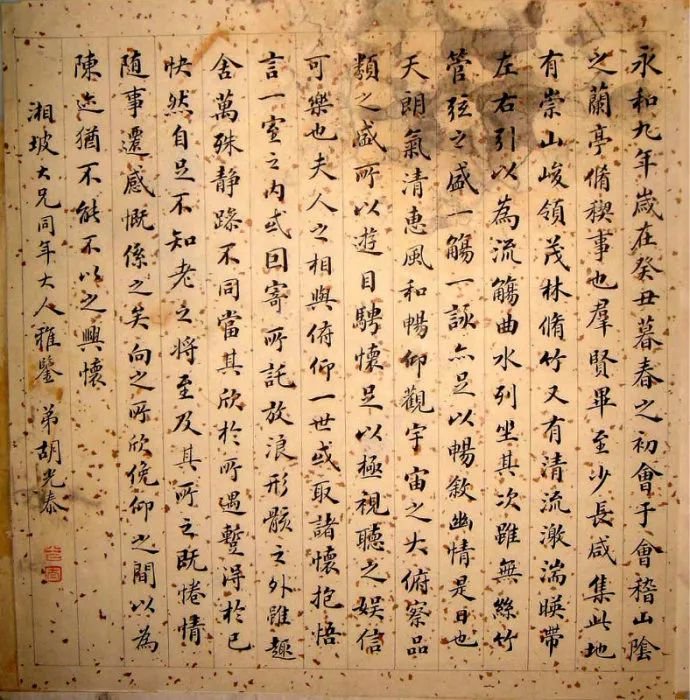 永和九年歲在癸丑暮春之初會于會稽山陰
之蘭亭脩稧事也羣賢畢至少長咸集此地
有崇山峻領茂林脩竹又有清流激湍暎帶
左右引以為流觴曲水列坐其次雖無絲竹
管弦之盛一觴一詠亦足以暢敘幽情是日也
天朗氣清惠風和暢仰觀宇宙之大俯察品
類之盛所以遊目騁懷足以極視聽之娛信
可樂也夫人之相與俯仰一世或取諸懷抱悟
言一室之內或回寄所託放浪形骸之外雖趣
舍萬殊静躁不同當其欣於所遇蹔得於己
怏然自足不知老之將至及其所之既惓情
随事遷感慨係之矣向之所欣俛仰之間以為
陳迹猶不能不以之興懷
湘坡大兄同年大人雅鑒 弟胡光泰